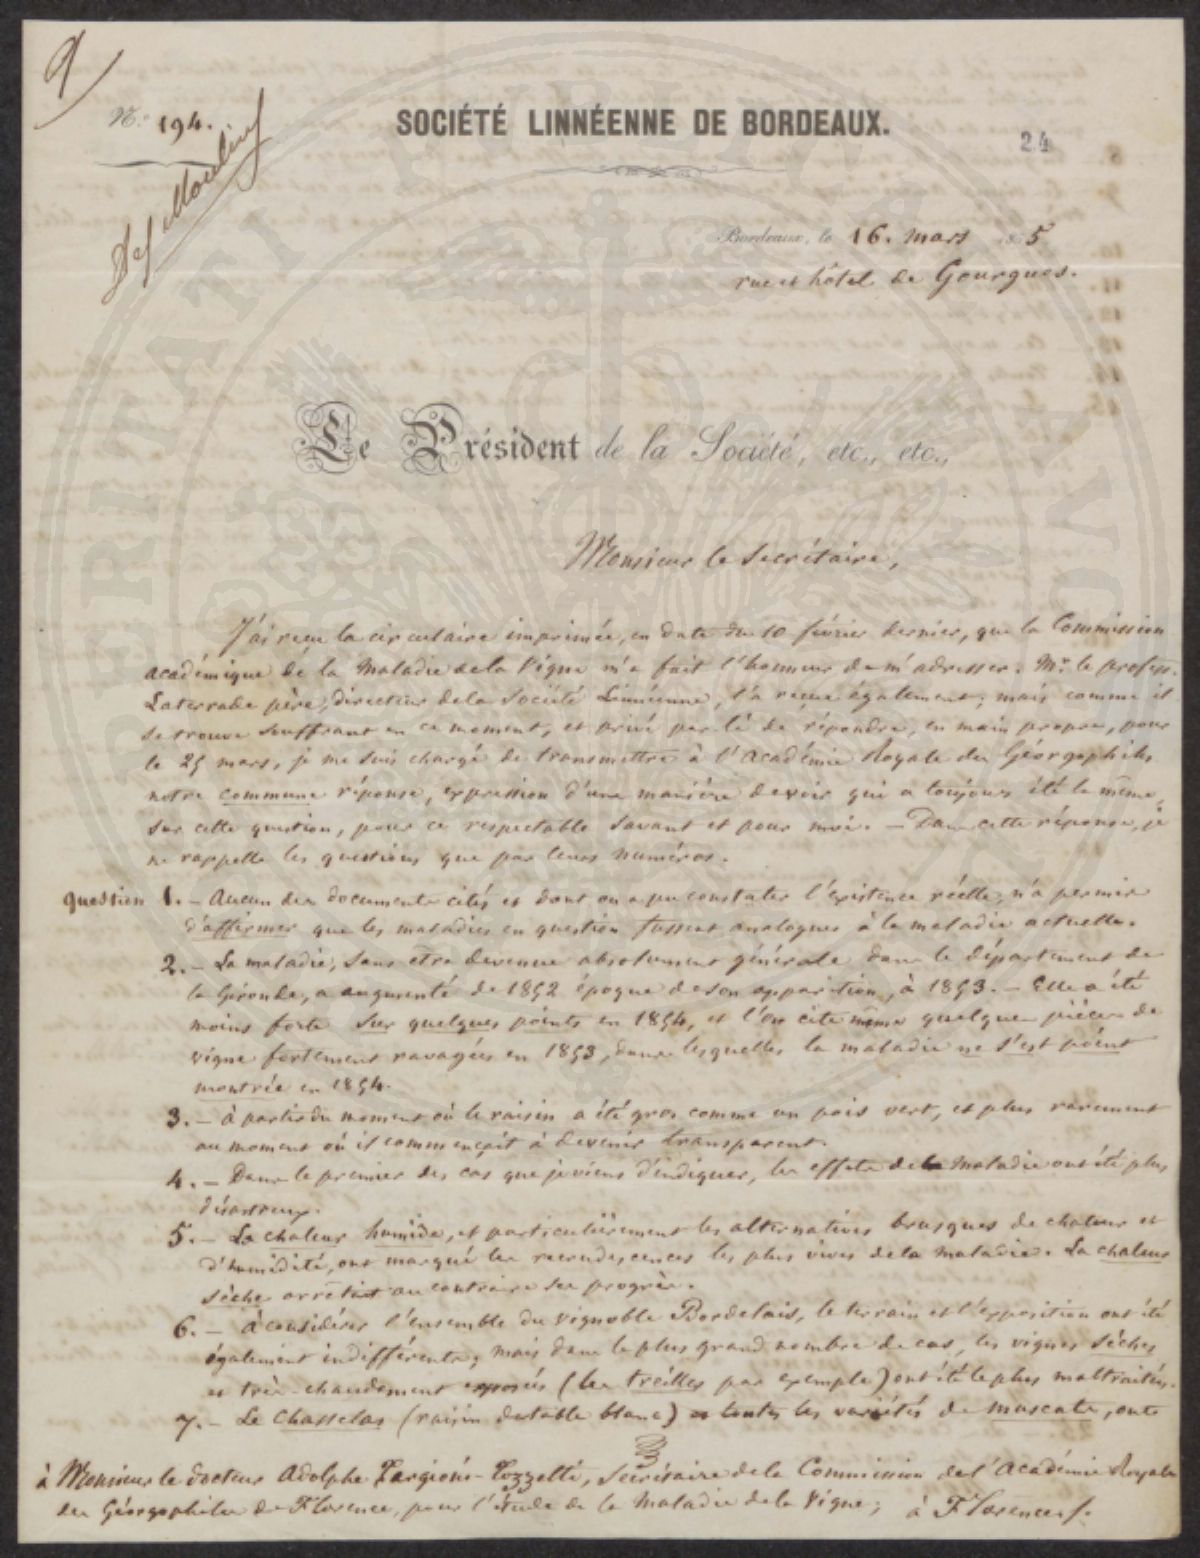 9
N.° 194.
SOCIÉTÉ LINNÉENNE DE BORDEAUX.
24
Des Moulins
Bordeaux, le 16. mars 1855
rue et hôtel de Gourgues.
Le Président de la Société, etc., etc.,
Monsieur le Secrétaire,
J'ai reçu la circulaire imprimée, en date du 10 février dernier, que la Commission
académique de la Maladie de la Vigne m'a fait l'honneur de m'adresser. Mr. le profess.
Laterrade père, directeur de la Société Linnéenne, l'a reçue également; mais comme il
se trouve souffrant en ce moment, et privé par là de répondre, en main propre, pour
le 25 mars, je me suis chargé de transmettre à l'Académie Royale des Géorgophiles
notre commune réponse, expression d'une manière de voir qui a toujours été la même,
sur cette question, pour ce respectable savant et pour moi. — Dans cette réponse, je
ne rappelle les questions que par leurs numéros.
Question 1. — Aucun des documents cités et dont on a pu constater l'existence réelle, n'a permis
d'affirmer que les maladies en question fussent analogues à la maladie actuelle.
2. — La maladie, sans être devenue absolument générale dans le département de
la Gironde, a augmenté de 1852 époque de son apparition, à 1853. — Elle a été
moins forte sur quelques points en 1854, et l'on cite même quelques pièces de
vigne fortement ravagées en 1853, dans lesquelles la maladie ne s'est point
montrée en 1854.
3. — à partir du moment où le raisin a été gros comme un pois vert, et plus rarement
au moment où il commençait à devenir transparent.
4. — Dans le premier des cas que je viens d'indiquer, les effets de la maladie ont été plus
désastreux.
5. — La chaleur humide, et particulièrement les alternatives brusques de chaleur et
d'humidité, ont marqué les recrudescences les plus vives de la maladie. La chaleur
sèche arrêtait au contraire ses progrès.
6. — à considérer l'ensemble du vignoble Bordelais, le terrain et l'exposition ont été
également indifférents; mais dans le plus grand nombre de cas, les vignes sèches
et très-chaudement exposées (les treilles par exemple) ont été le plus maltraitées.
7. — Le Chasselas (raisin de table blanc) et toutes les variétés de muscats, ont
à Monsieur le docteur Adolphe Targioni-Tozzetti, Secrétaire de la Commission de l'Académie Royale
des Géorgophiles de Florence, pour l'étude de la Maladie de la Vigne; à Florence.